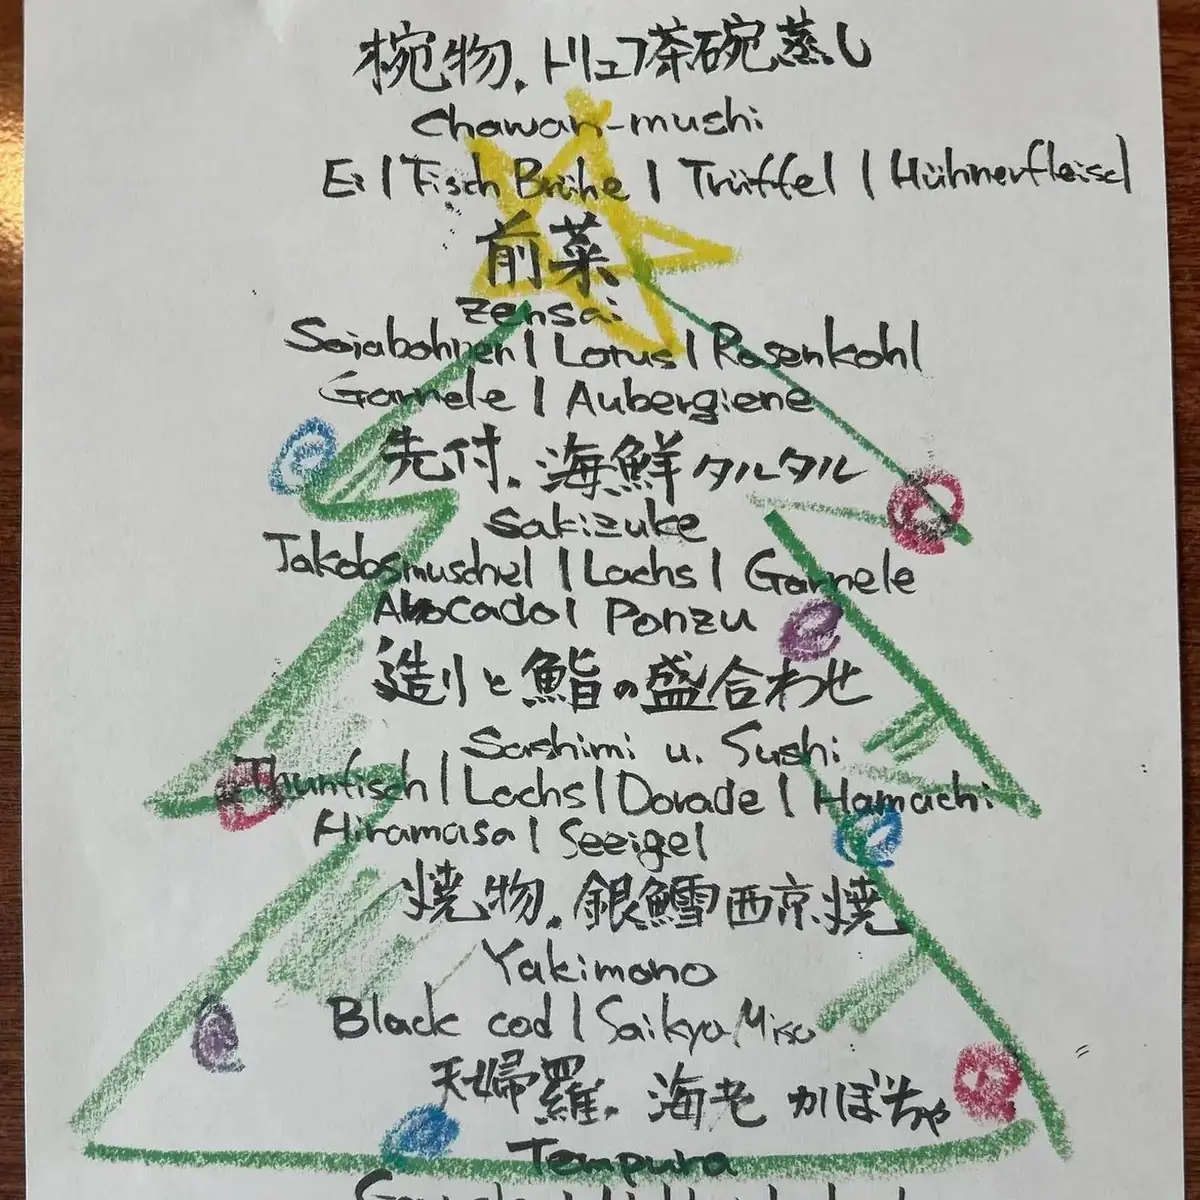 椀物.トリュフ茶碗蒸し
Chawan-mushi
Ei | Fisch Brühe | Trüffel | Hühnerfleisch
前菜
Zensai
Soiabohnen | Lotus | Rosenkohl
Garnele | Aubergiene
先付.海鮮タルタル
Sakizuke
Jakobsmuschel | Lachs | Garnele
Avocado | Ponzu
造りと鮨の盛合わせ
Sashimi u. Sushi
Thunfisch | Lachs | Dorade | Hamachi
Hiramasa | Seeigel
焼物.銀鱈西京焼
Yakimono
Black cod | Saikyo Miso
天婦羅.海老 かぼちゃ
Tempura